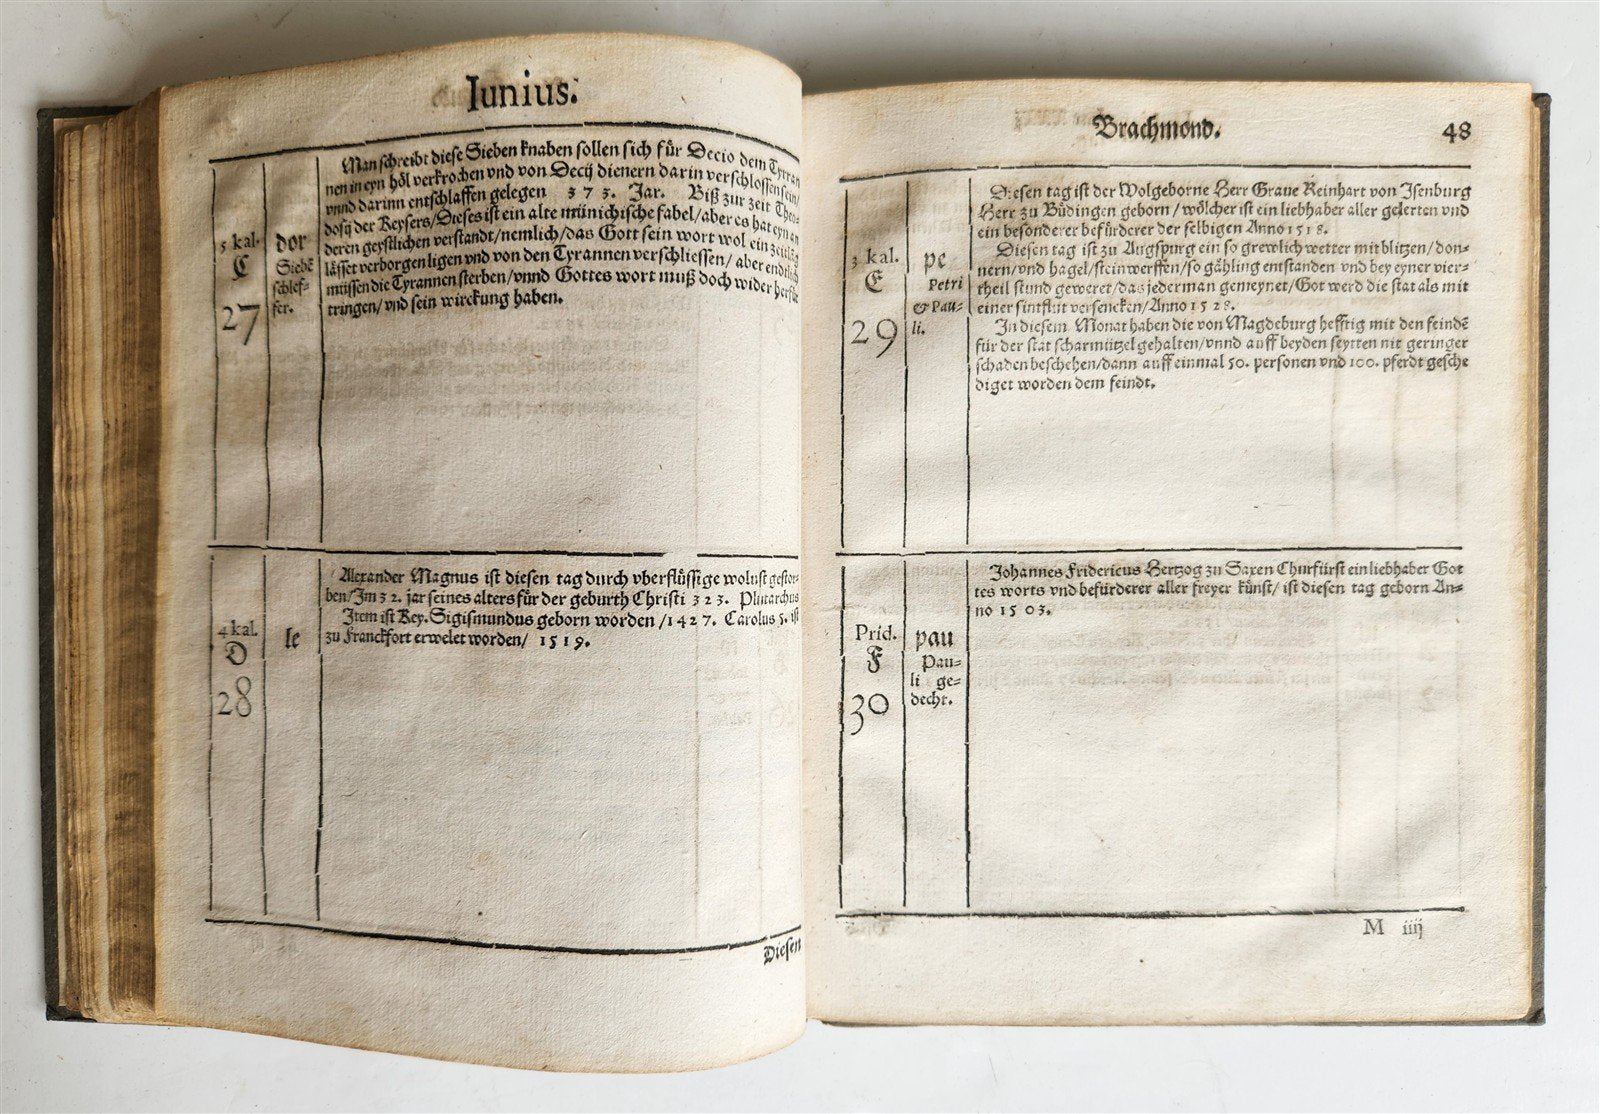 Junius.
5 kal.
C
27
dor
Siebē
schlef=
fer.
Man schreibt diese Sieben knaben sollen sich für Decio dem Tyran
nen in eyn höl verkrochen vnd von Decij dienern darin verschlossen sein/
vnnd darinn entschlaffen gelegen 373. Jar. Biß zur zeit Theo=
dosij der Keysers/Dieses ist ein alte münichische fabel/aber es hat eyn an
deren geystlichen verstandt/nemlich/das Gott sein wort wol ein zeitlāg
lässet verborgen ligen vnd von den Tyrannen verschliessen/aber endtlich
müssen die Tyrannen sterben/vnnd Gottes wort muß doch wider herfür
tringen/vnd sein wirckung haben.
4 kal.
D
28
le
Alexander Magnus ist diesen tag durch vberflüssige wolust gestor=
ben/Im 32. jar seines alters für der geburth Christi 323. Plutarchus
Item ist Key. Sigismundus geborn worden/1427. Carolus 5. ist
zu Franckfort erwelet worden/ 1519.
Diesen
Brachmond.
48
3 kal.
E
29
pe
Petri
& Pau=
li.
Diesen tag ist der Wolgeborne Herr Graue Reinhart von Jsenburg
Herr zu Büdingen geborn/wölcher ist ein liebhaber aller gelerten vnd
ein besonderer befürderer der selbigen Anno 1518.
Diesen tag ist zu Augspurg ein so grewlich wetter mit blitzen/don=
nern/vnd hagel/steinwerffen/so gähling entstanden vnd bey eyner vier=
theil stund geweret/das jederman gemeynet/Got werd die stat als mit
einer sintflut versencken/Anno 1528.
In diesem Monat haben die von Magdeburg hefftig mit den feindē
für der stat scharmützel gehalten/vnnd auff beyden seytten nit geringer
schaden beschehen/dann auff einmal 50. personen vnd 100. pferdt gesche
diget worden dem feindt.
Prid.
F
30
pau
Pau=
li ge=
decht.
Johannes Fridericus Hertzog zu Saxen Churfürst ein liebhaber Got
tes worts vnd befürderer aller freyer künst/ist diesen tag geborn An=
no 1503.
M iiij